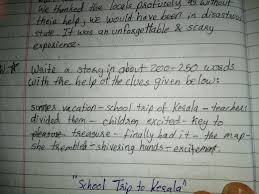 We thanked the locals profusely as without
their help, we would have been in disastrous
state. It was an unforgettable & scary
experience.
Write a story in about 200-250 words
with the help of the clues given below:
summer vacation - school trip of Kerala - teachers
divided them - children excited - key to
pleasure treasure - finally had it - the map -
she trembled - shivering hands - excitement.
"School Trip to Kerala"